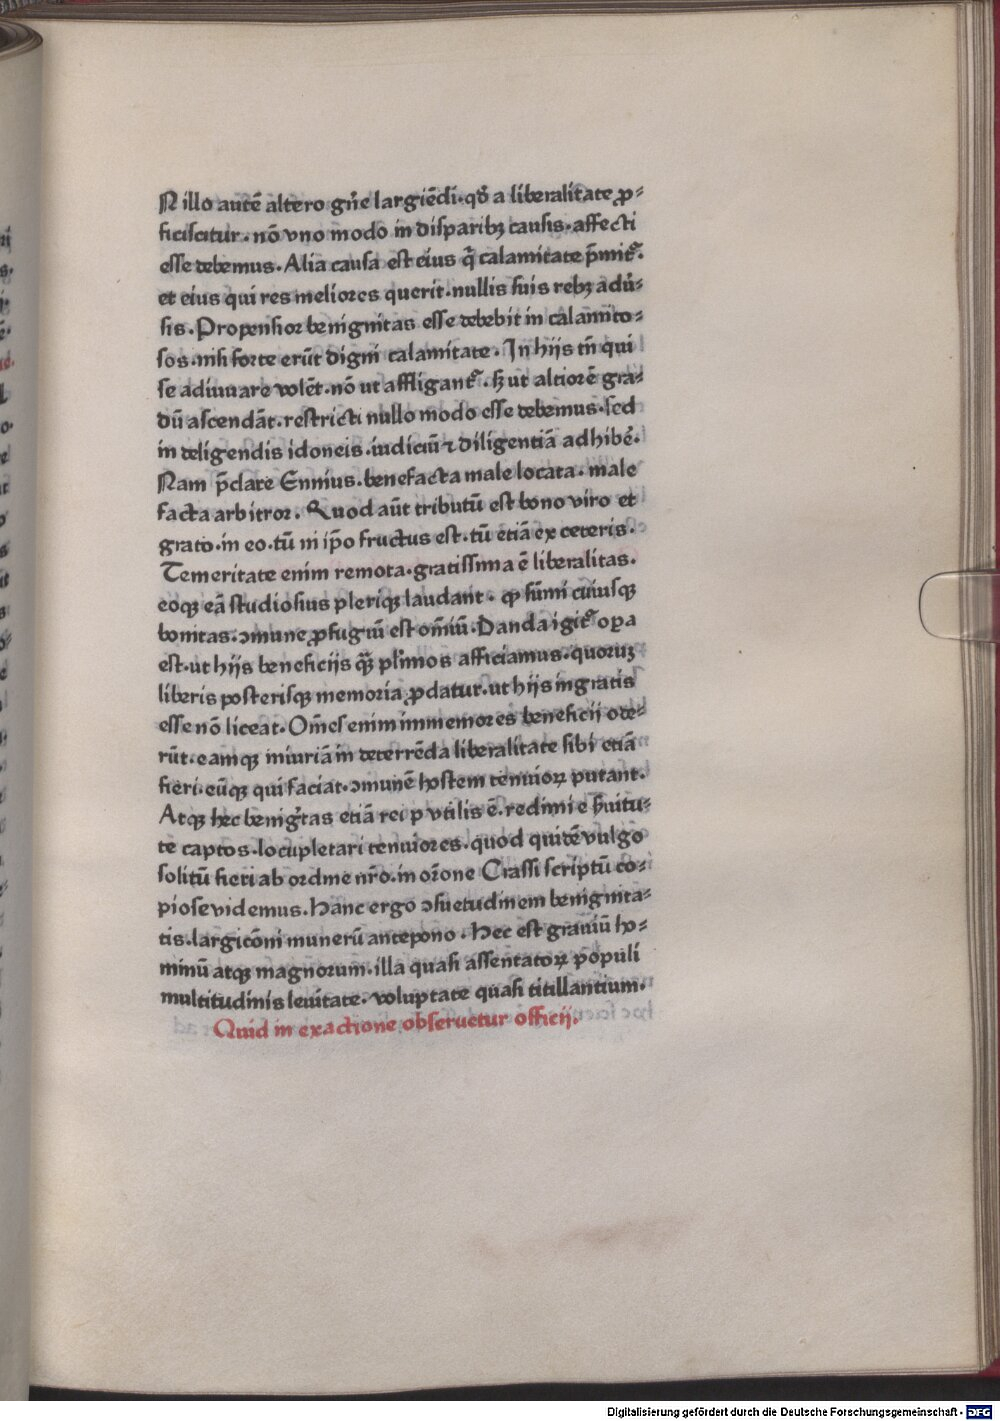 N illo autē altero gn̄e largiēdi·qd̄ a liberalitate ꝓ⸗
ficiscitur·nō vno modo in disparibꝫ causis·affecti
esse debemus·Alia causa est eius q̄ calamitate p̄mit᷑·
et eius qui res meliores querit·nullis suis rebꝫ adu᷑⸗
sis·Propensior benignitas esse debebit in calamito⸗
sos·nisi forte erūt digni calamitate·In hijs tn̄ qui
se adiuuare volēt·nō ut affligant᷑·sꝫ ut altiorē gra⸗
dū ascendāt·restricti nullo modo esse debemus·sed
in deligendis idoneis·iudiciū ⁊ diligentiā adhibē·
Nam p̄clare Ennius·benefacta male locata·male
facta arbitror·Quod aūt tributū est bono viro et
grato·in eo·tū ni ip̄o fructus est·tū etiā ex ceteris·
Temeritate enim remota·gratissima ē liberalitas·
eoqꝫ eā studiosius pleriqꝫ laudant·ꝙ sūmi cuiusqꝫ
bonitas·ↄmune ꝓfugiū est om̄iū·Danda igit᷑ oꝑa
est·ut hijs beneficijs qꝫ̄ pl̄imos afficiamus·quoruꝫ
liberis posterisqꝫ memoria ꝓdatur·ut hijs ingratis
esse nō liceat·Om̄es enim immemores beneficij ode⸗
rūt·eamqꝫ iniuriā in deterrēda liberalitate sibi etiā
fieri·eūqꝫ qui faciat·ↄmunē hostem tenuioꝝ putant·
Atqꝫ hec benigͥtas etiā rei p vtilis ē·redimi e s̄uitu⸗
te captos·locupletari tenuiores·quod quidē vulgo
solitū fieri ab ordine nr̄o·in or̄one Crassi scriptū co⸗
piose videmus·Hanc ergo ↄsuetudinem benignita⸗
tis·largicōni munerū antepono·Hec est grauiū ho⸗
minū atqꝫ magnorum·illa quasi assentatoꝝ populi
multitudinis leuitate·voluptate quasi titillantium·
Quid in exactione obseruetur officij·
Digitalisierung gefördert durch die Deutsche Forschungsgemeinschaft - DFG